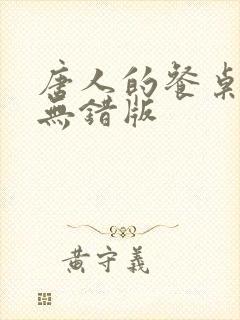 唐人的餐桌
無錯版
黃守義